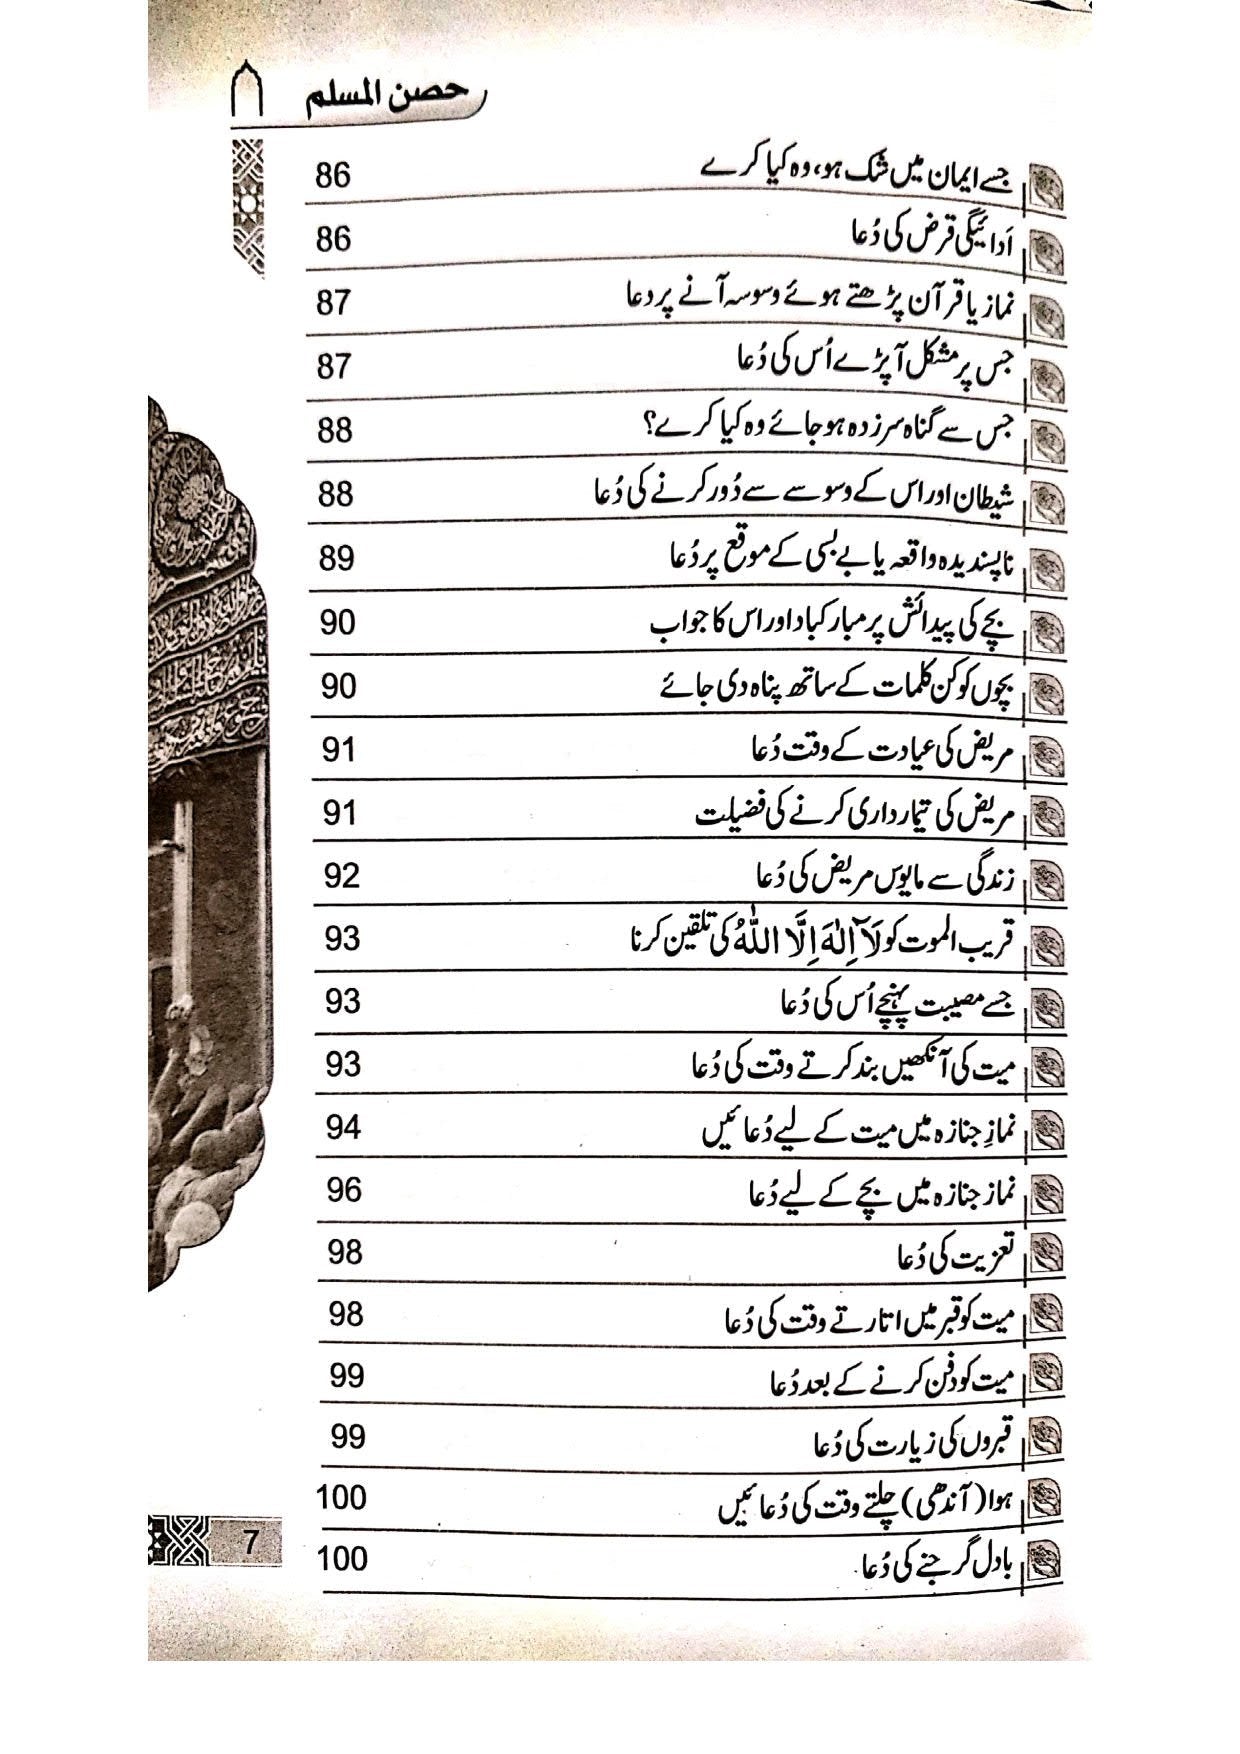 حصن المسلم
جسے ایمان میں شک ہو، وہ کیا کرے 86
اَدائیگی قرض کی دُعا 86
نماز یا قرآن پڑھتے ہوئے وسوسہ آنے پر دعا 87
جس پر مشکل آ پڑے اُس کی دُعا 87
جس سے گناہ سرزد ہو جائے وہ کیا کرے؟ 88
شیطان اور اس کے وسوسے سے دُور کرنے کی دُعا 88
ناپسندیدہ واقعہ یا بے بسی کے موقع پر دُعا 89
بچے کی پیدائش پر مبارکباد اور اس کا جواب 90
بچوں کو کن کلمات کے ساتھ پناہ دی جائے 90
مریض کی عیادت کے وقت دُعا 91
مریض کی تیمارداری کرنے کی فضیلت 91
زندگی سے مایوس مریض کی دُعا 92
قریب الموت کو لَآ اِلٰهَ اِلَّا اللّٰهُ کی تلقین کرنا 93
جسے مصیبت پہنچے اُس کی دُعا 93
میت کی آنکھیں بند کرتے وقت کی دُعا 93
نمازِ جنازہ میں میت کے لیے دُعائیں 94
نماز جنازہ میں بچے کے لیے دُعا 96
تعزیت کی دُعا 98
میت کو قبر میں اتارتے وقت کی دُعا 98
میت کو دفن کرنے کے بعد دُعا 99
قبروں کی زیارت کی دُعا 99
ہوا (آندھی) چلتے وقت کی دُعائیں 100
بادل گرجنے کی دُعا 100
7